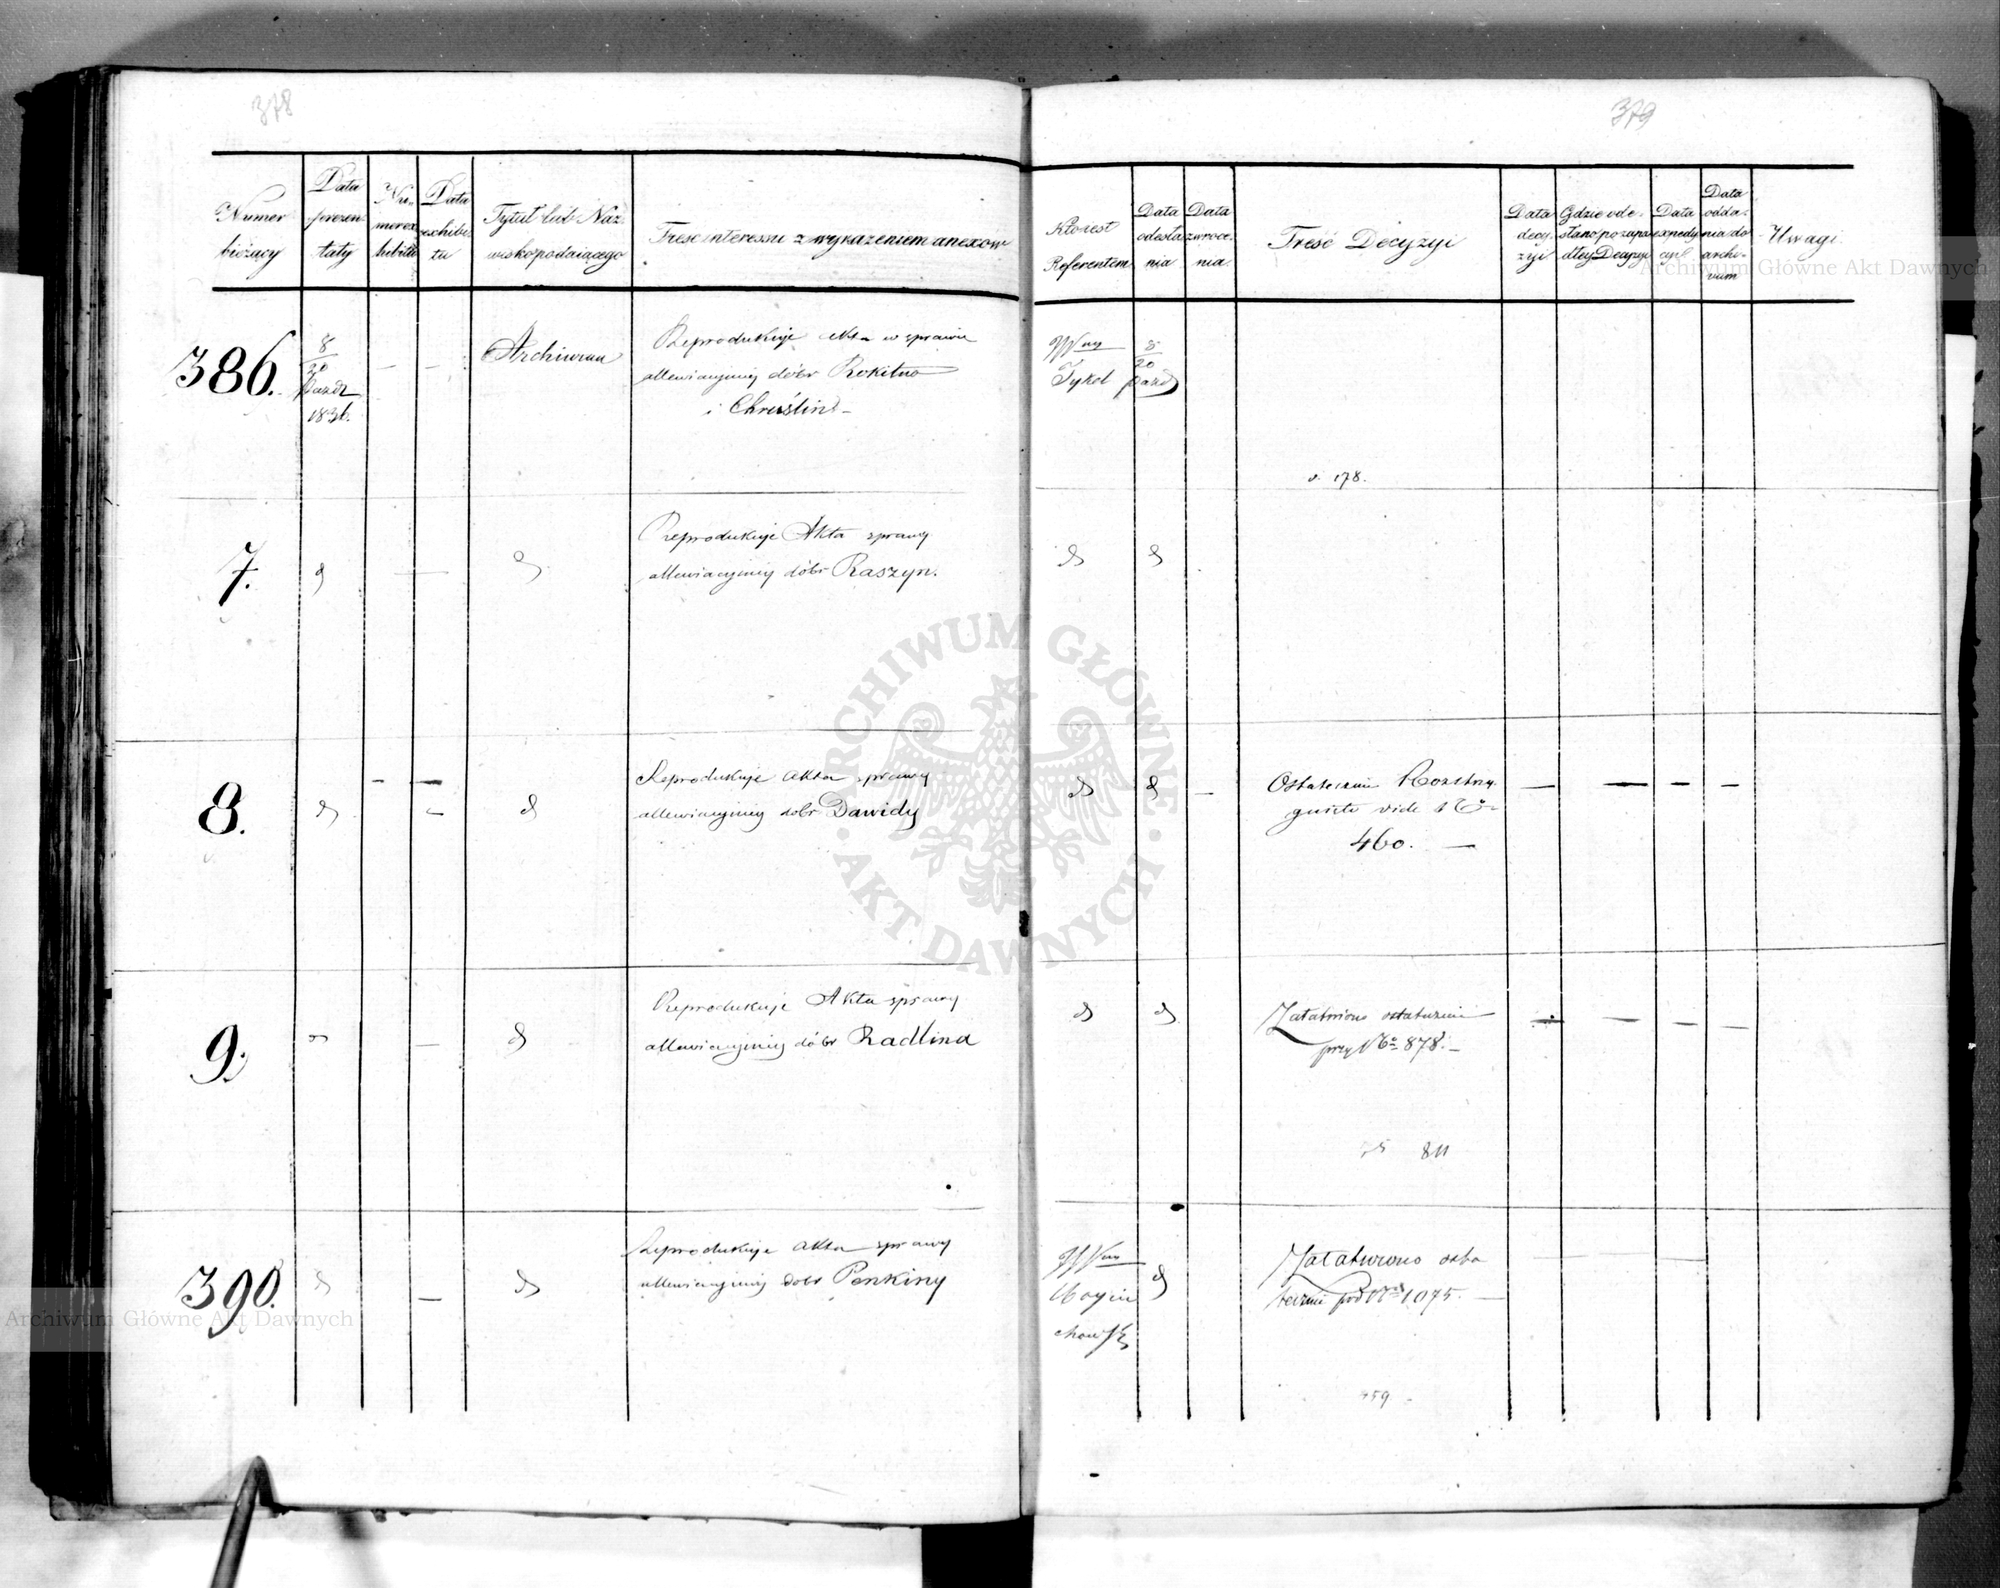 378
Numer bieżący
Data prezentaty
Numer exhibitu
Data exhibitu
Tytuł lub Nazwisko podaiącego
Treść interessu z wyrażeniem anexów
386.
8/20 Paźdz 1836.
— —
Archiwum
Reprodukuje akta w sprawie
allewiacyjnej dóbr Rokitno
i Chruślin –
7.
d
—
d
Reprodukuje Akta sprawy
allewiacyjnej dóbr Raszyn.
8.
d
— —
—
d
Reprodukuje akta sprawy
allewiacyjnej dobr Dawidy
9.
d
—
d
Reprodukuje Akta sprawy
allewiacyjnej dóbr Radlina
390.
d
—
d
Reprodukuje akta sprawy
allewiacyjnej dobr Penkiny
379
Kto iest Referentem
Data odesłania
Data zwrócenia.
Treść Decyzyi
Data decyzyi
Gdzie odesłano po zapadłey Decyzyi
Data expedycyi
Data oddania do archivum
Uwagi
WJny
Tykel
8/20 Paźd
v. 178.
d d
d d —
Ostatecznie Rozstrzy
gnięte vide No
460. —
— — — —
d d
Załatwiono ostatecznie
przy No 878. –
— — — —
811
WJny
Woycie
chowski
d
Załatwiono osta
tecznie pod No 1075. —
459.
ARCHIWUM GŁÓWNE · AKT DAWNYCH ·
Archiwum Główne Akt Dawnych
Archiwum Główne Akt Dawnych